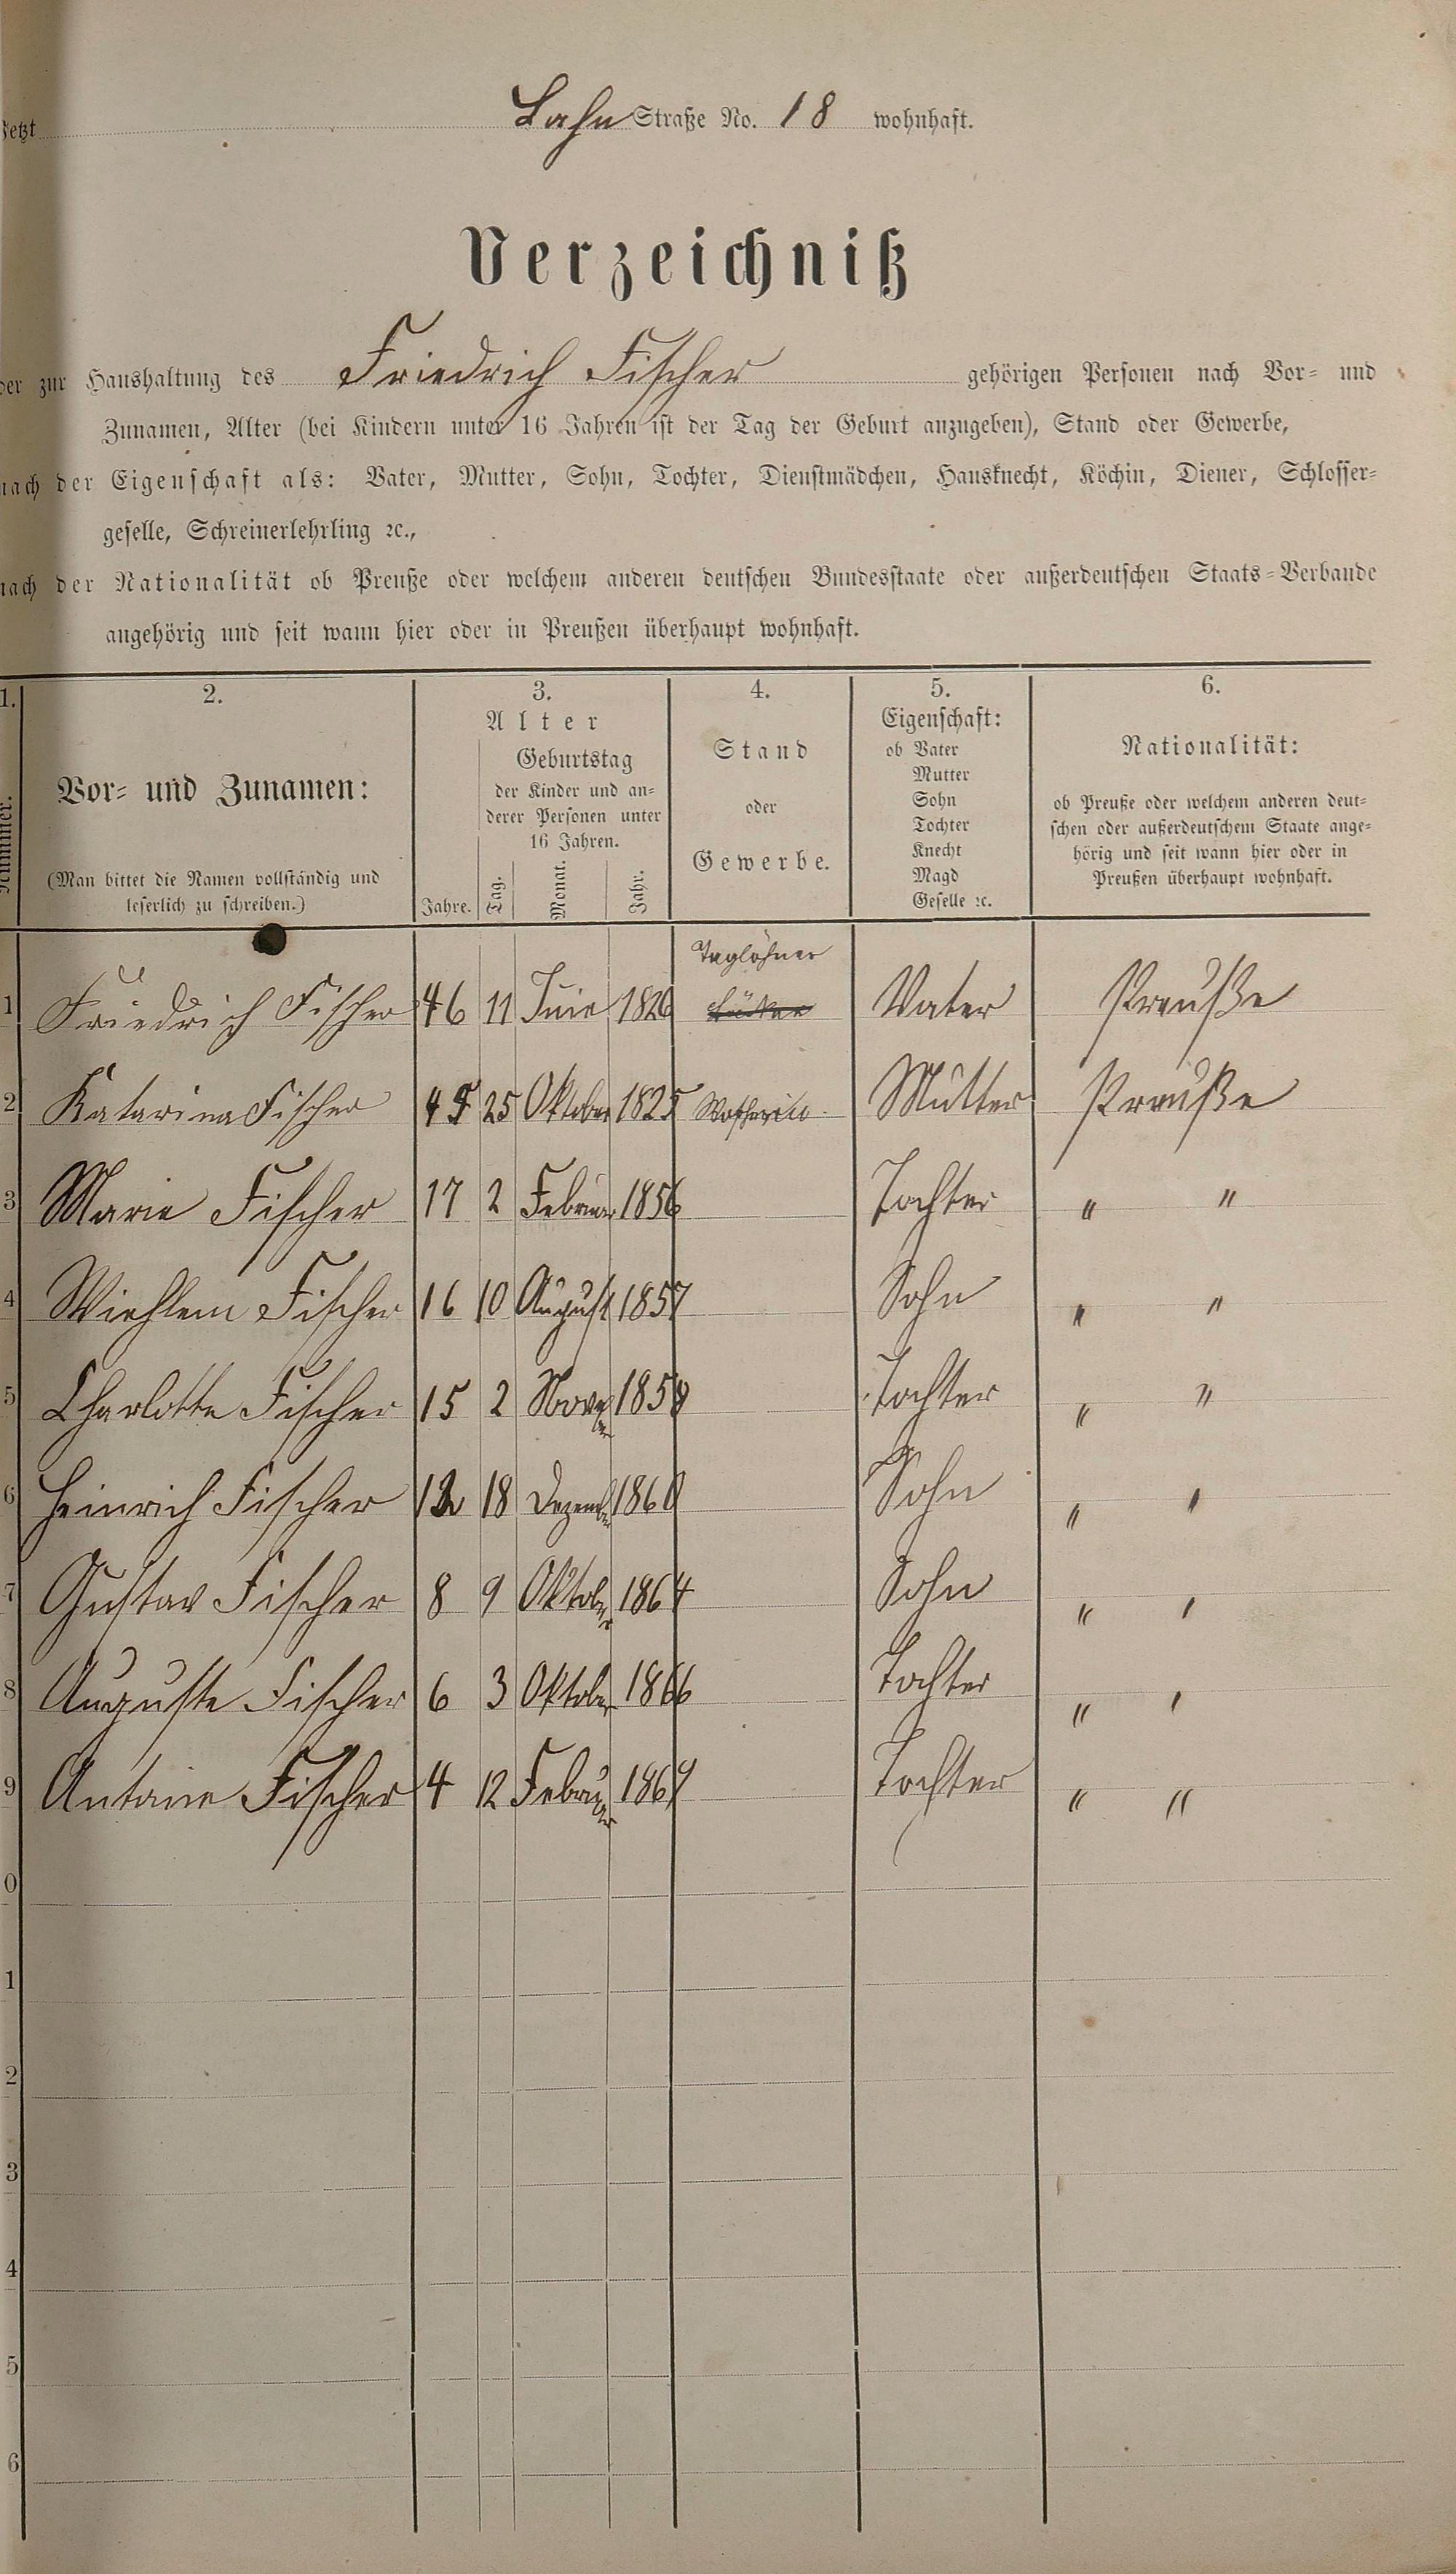 Jetzt Lahn Straße No. 18 wohnhaft.
Verzeichniß
der zur Haushaltung des Friedrich Fischer gehörigen Personen nach Vor- und
Zunamen, Alter (bei Kindern unter 16 Jahren ist der Tag der Geburt anzugeben), Stand oder Gewerbe,
nach der Eigenschaft als: Vater, Mutter, Sohn, Tochter, Dienstmädchen, Hausknecht, Köchin, Diener, Schlosser-
geselle, Schreinerlehrling ꝛc.,
nach der Nationalität ob Preuße oder welchem anderen deutschen Bundesstaate oder außerdeutschen Staats-Verbande
angehörig und seit wann hier oder in Preußen überhaupt wohnhaft.
1. 2. 3. 4. 5. 6.
Nummer.
Vor- und Zunamen:
(Man bittet die Namen vollständig und
leserlich zu schreiben.)
Alter
Jahre.
Geburtstag
der Kinder und an-
derer Personen unter
16 Jahren.
Tag. Monat. Jahr.
Stand
oder
Gewerbe.
Eigenschaft:
ob Vater
Mutter
Sohn
Tochter
Knecht
Magd
Geselle ꝛc.
Nationalität:
ob Preuße oder welchem anderen deut-
schen oder außerdeutschem Staate ange-
hörig und seit wann hier oder in
Preußen überhaupt wohnhaft.
Taglöhner
1 Friedrich Fischer 46 11 Juni 1826 Vater Preuße
2 Katarina Fischer 45 25 Oktober 1825 Mutter Preuße
3 Marie Fischer 17 2 Februar 1856 Tochter " "
4 Wiehlem Fischer 16 10 August 1857 Sohn " "
5 Charlotte Fischer 15 2 November 1858 Tochter " "
6 Heinrich Fischer 12 18 Dezember 1860 Sohn " "
7 Gustav Fischer 8 9 Oktober 1864 Sohn " "
8 Auguste Fischer 6 3 Oktober 1866 Tochter " "
9 Antonie Fischer 4 12 Februar 1869 Tochter " "
0
1
2
3
4
5
6